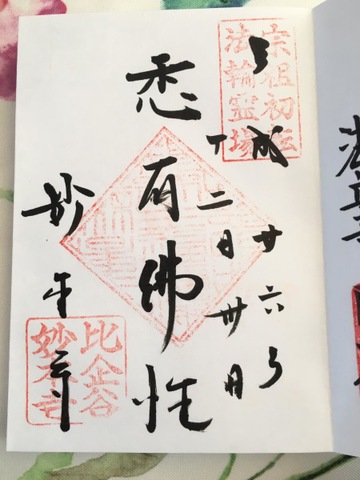 宗祖初転
法輪霊場
平成廿六年
十二月卅日
悉有佛性
妙本寺
比企谷
妙本寺